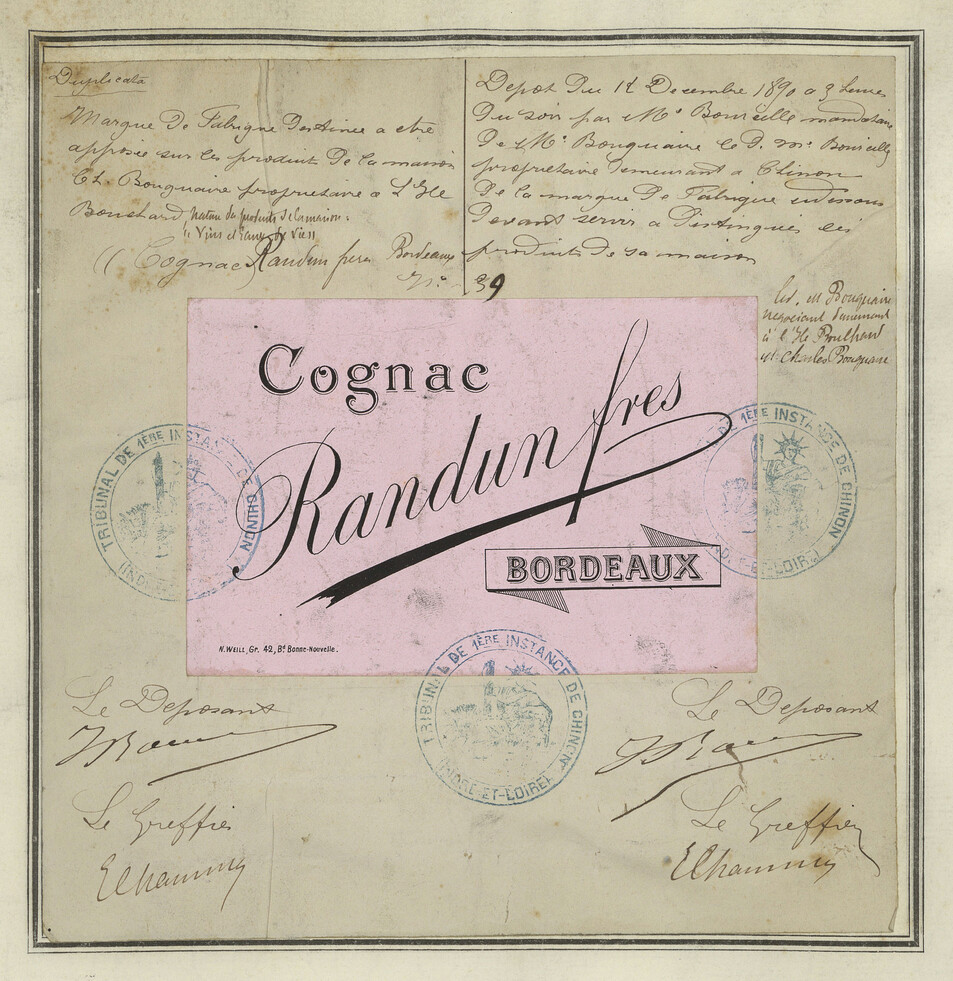 Duplicata
Marque De Fabrique Destinee a etre
apposée sur les produits De la maison
Ch. Bouquaire propriétaire a L'Ile
Bouchard
nature des produits de la maison :
" Vins et Eaux de Vie "
(( Cognac Randun freres Bordeaux
N° 39
Depot Du 12 Decembre 1890 a 3 heures
Du soir par Mr Bourcille mandataire
De Mr Bouquaire le D. Mr Bourcille
propriétaire demeurant a Chinon
De la marque De Fabrique cidessous
Devant servir a Distinguer les
produits De sa maison
led. Mr Bouquaire
négociant demeurant
à l'Ile Bouchard
Charles Bouquaire
Cognac
Randun fres
BORDEAUX
N. WEILL, Gr. 42, Bd Bonne-Nouvelle.
TRIBUNAL DE 1ÈRE INSTANCE DE CHINON
(INDRE-ET-LOIRE)
TRIBUNAL DE 1ÈRE INSTANCE DE CHINON
(INDRE-ET-LOIRE)
TRIBUNAL DE 1ÈRE INSTANCE DE CHINON
(INDRE-ET-LOIRE)
Le Deposant
Le Greffier
Le Deposant
Le Greffier